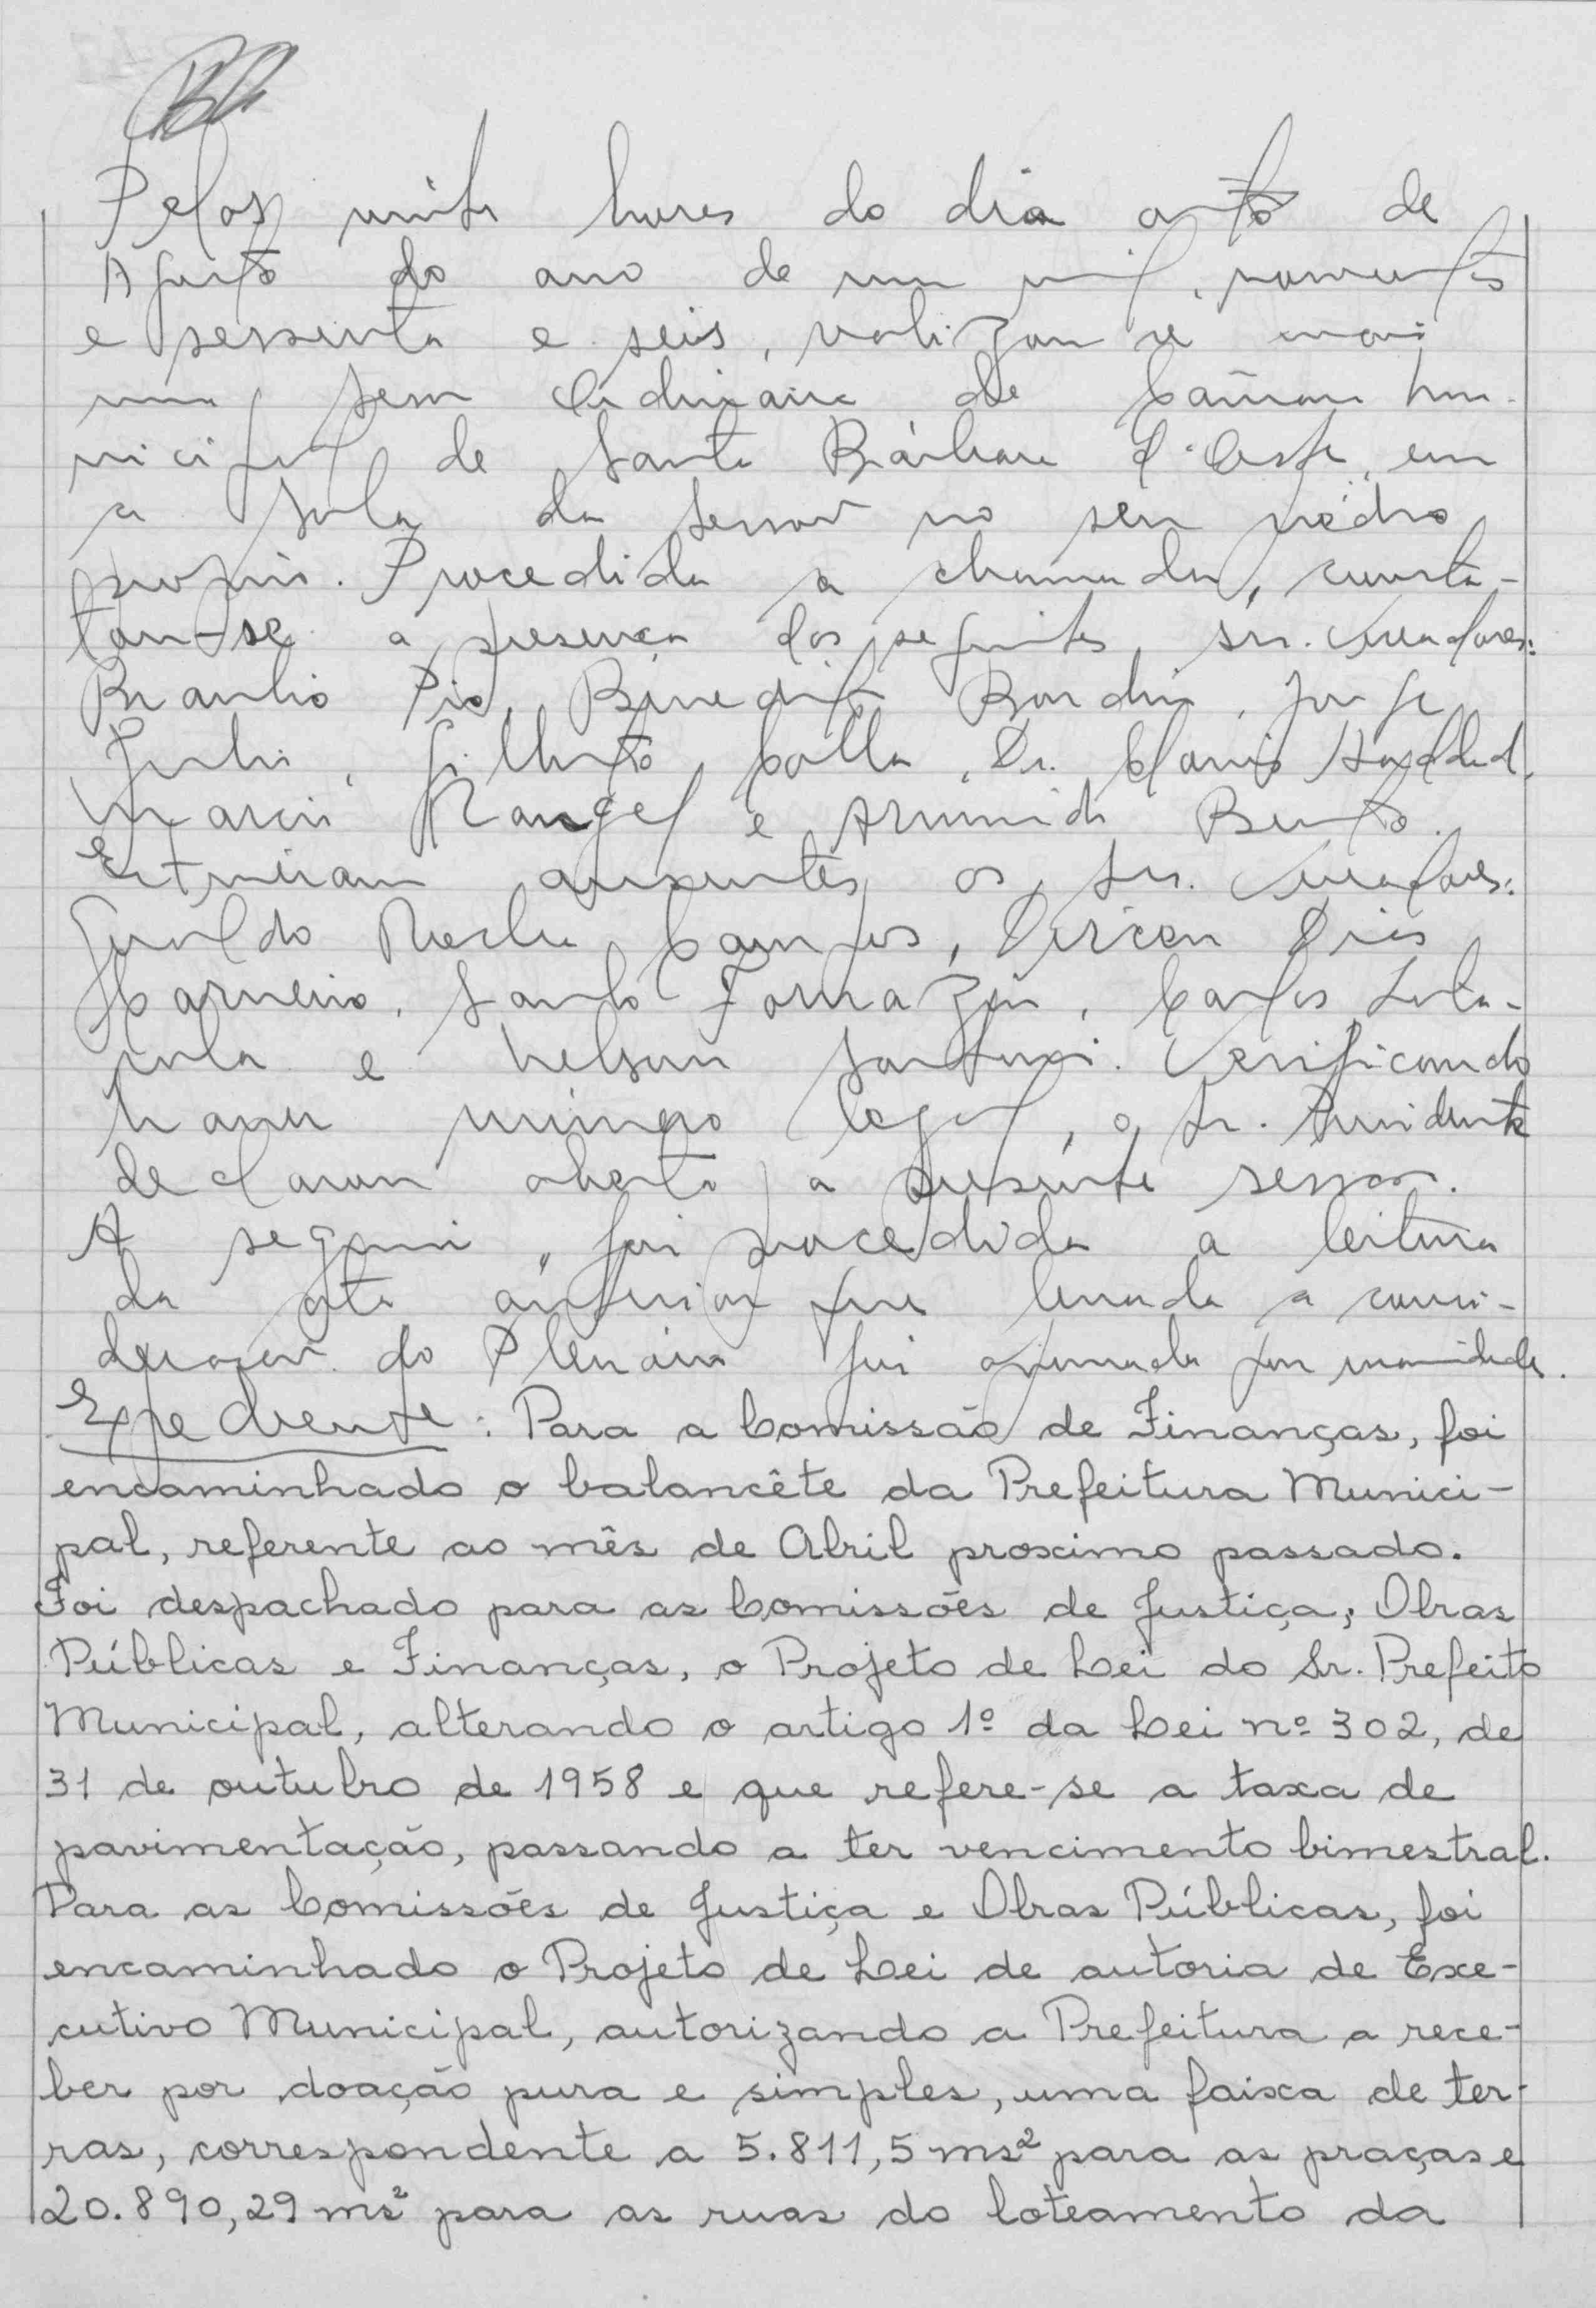 Pelas vinte horas do dia oito de
Agosto do ano de um mil, novecentos
e sessenta e seis, realizou-se mais
uma sessão Ordinária da Câmara Mu-
nicipal de Santa Bárbara d'Oeste, em
a sala da sessão no seu prédio
proprio. Procedida a chamada, consta-
tou-se a presença dos seguintes srs. Vereadores:
Braulio Pio, Benedito Bordin, Jorge
Julio, Gilberto Calla, Dr. Clovis Haddad,
Marcio Rangel e Bento.
Estiveram ausentes os srs. Vereadores:
Geraldo Rocha Campos, Dirceu Dias
Carneiro, Santo Fornazin, Carlos
e Nelson. Verificando
haver número legal, o Sr. Presidente
declarou aberta a presente sessão.
A seguir, foi procedida a leitura
da ata anterior que levada a consi-
deração do Plenário foi aprovada por unanimidade.
Expediente: Para a Comissão de Finanças, foi
encaminhado o balancête da Prefeitura Munici-
pal, referente ao mês de Abril proximo passado.
Foi despachado para as Comissões de Justiça, Obras
Públicas e Finanças, o Projeto de Lei do Sr. Prefeito
Municipal, alterando o artigo 1º da Lei nº 302, de
31 de outubro de 1958 e que refere-se a taxa de
pavimentação, passando a ter vencimento bimestral.
Para as Comissões de Justiça e Obras Públicas, foi
encaminhado o Projeto de Lei de autoria de Exe-
cutivo Municipal, autorizando a Prefeitura a rece-
ber por doação pura e simples, uma faixa de ter-
ras, correspondente a 5.811,5 ms² para as praças e
20.890,29 ms² para as ruas do loteamento da